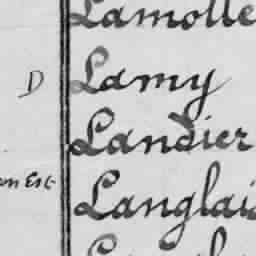 Lamolle
D Lamy
Landier
on Est. Langlais